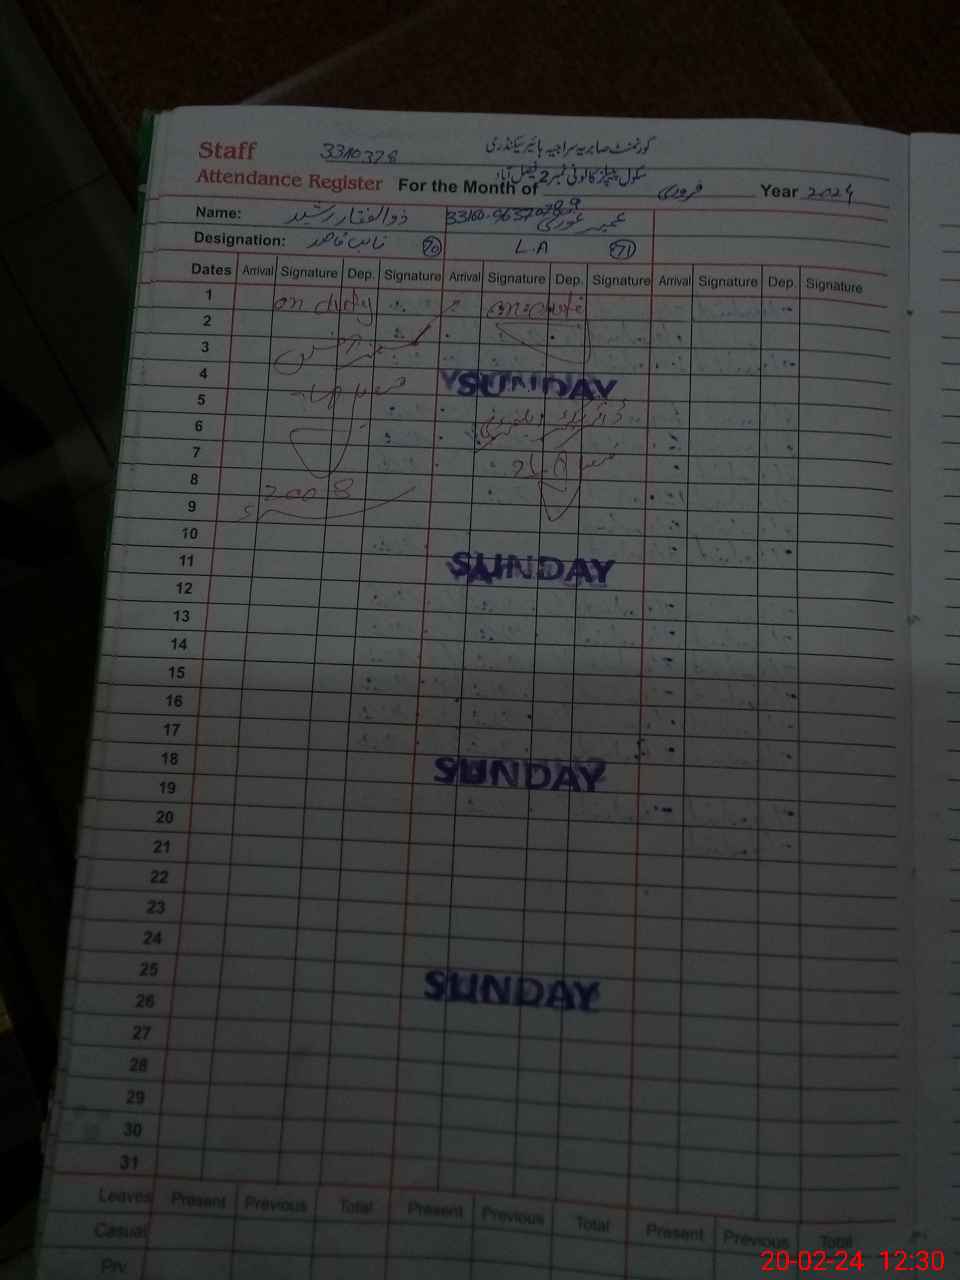 گورنمنٹ صابریہ سراجیہ ہائیر سیکنڈری
Staff 3310328
سکول پیپلز کالونی نمبر 2 فیصل آباد
Attendance Register For the Month of فروری Year 2024
Name: ذوالفقار رشید عمیر غوری
Designation: نائب قاصد 70 L.A 71
Dates Arrival Signature Dep. Signature Arrival Signature Dep. Signature Arrival Signature Dep. Signature
1 on duty
2
3
4 SUNDAY
5
6
7
8
9
10
11 SUNDAY
12
13
14
15
16
17
18 SUNDAY
19
20
21
22
23
24
25 SUNDAY
26
27
28
29
30
31
Leaves Present Previous Total Present Previous Total Present Previous Total
Casual
Prv.
20-02-24 12:30